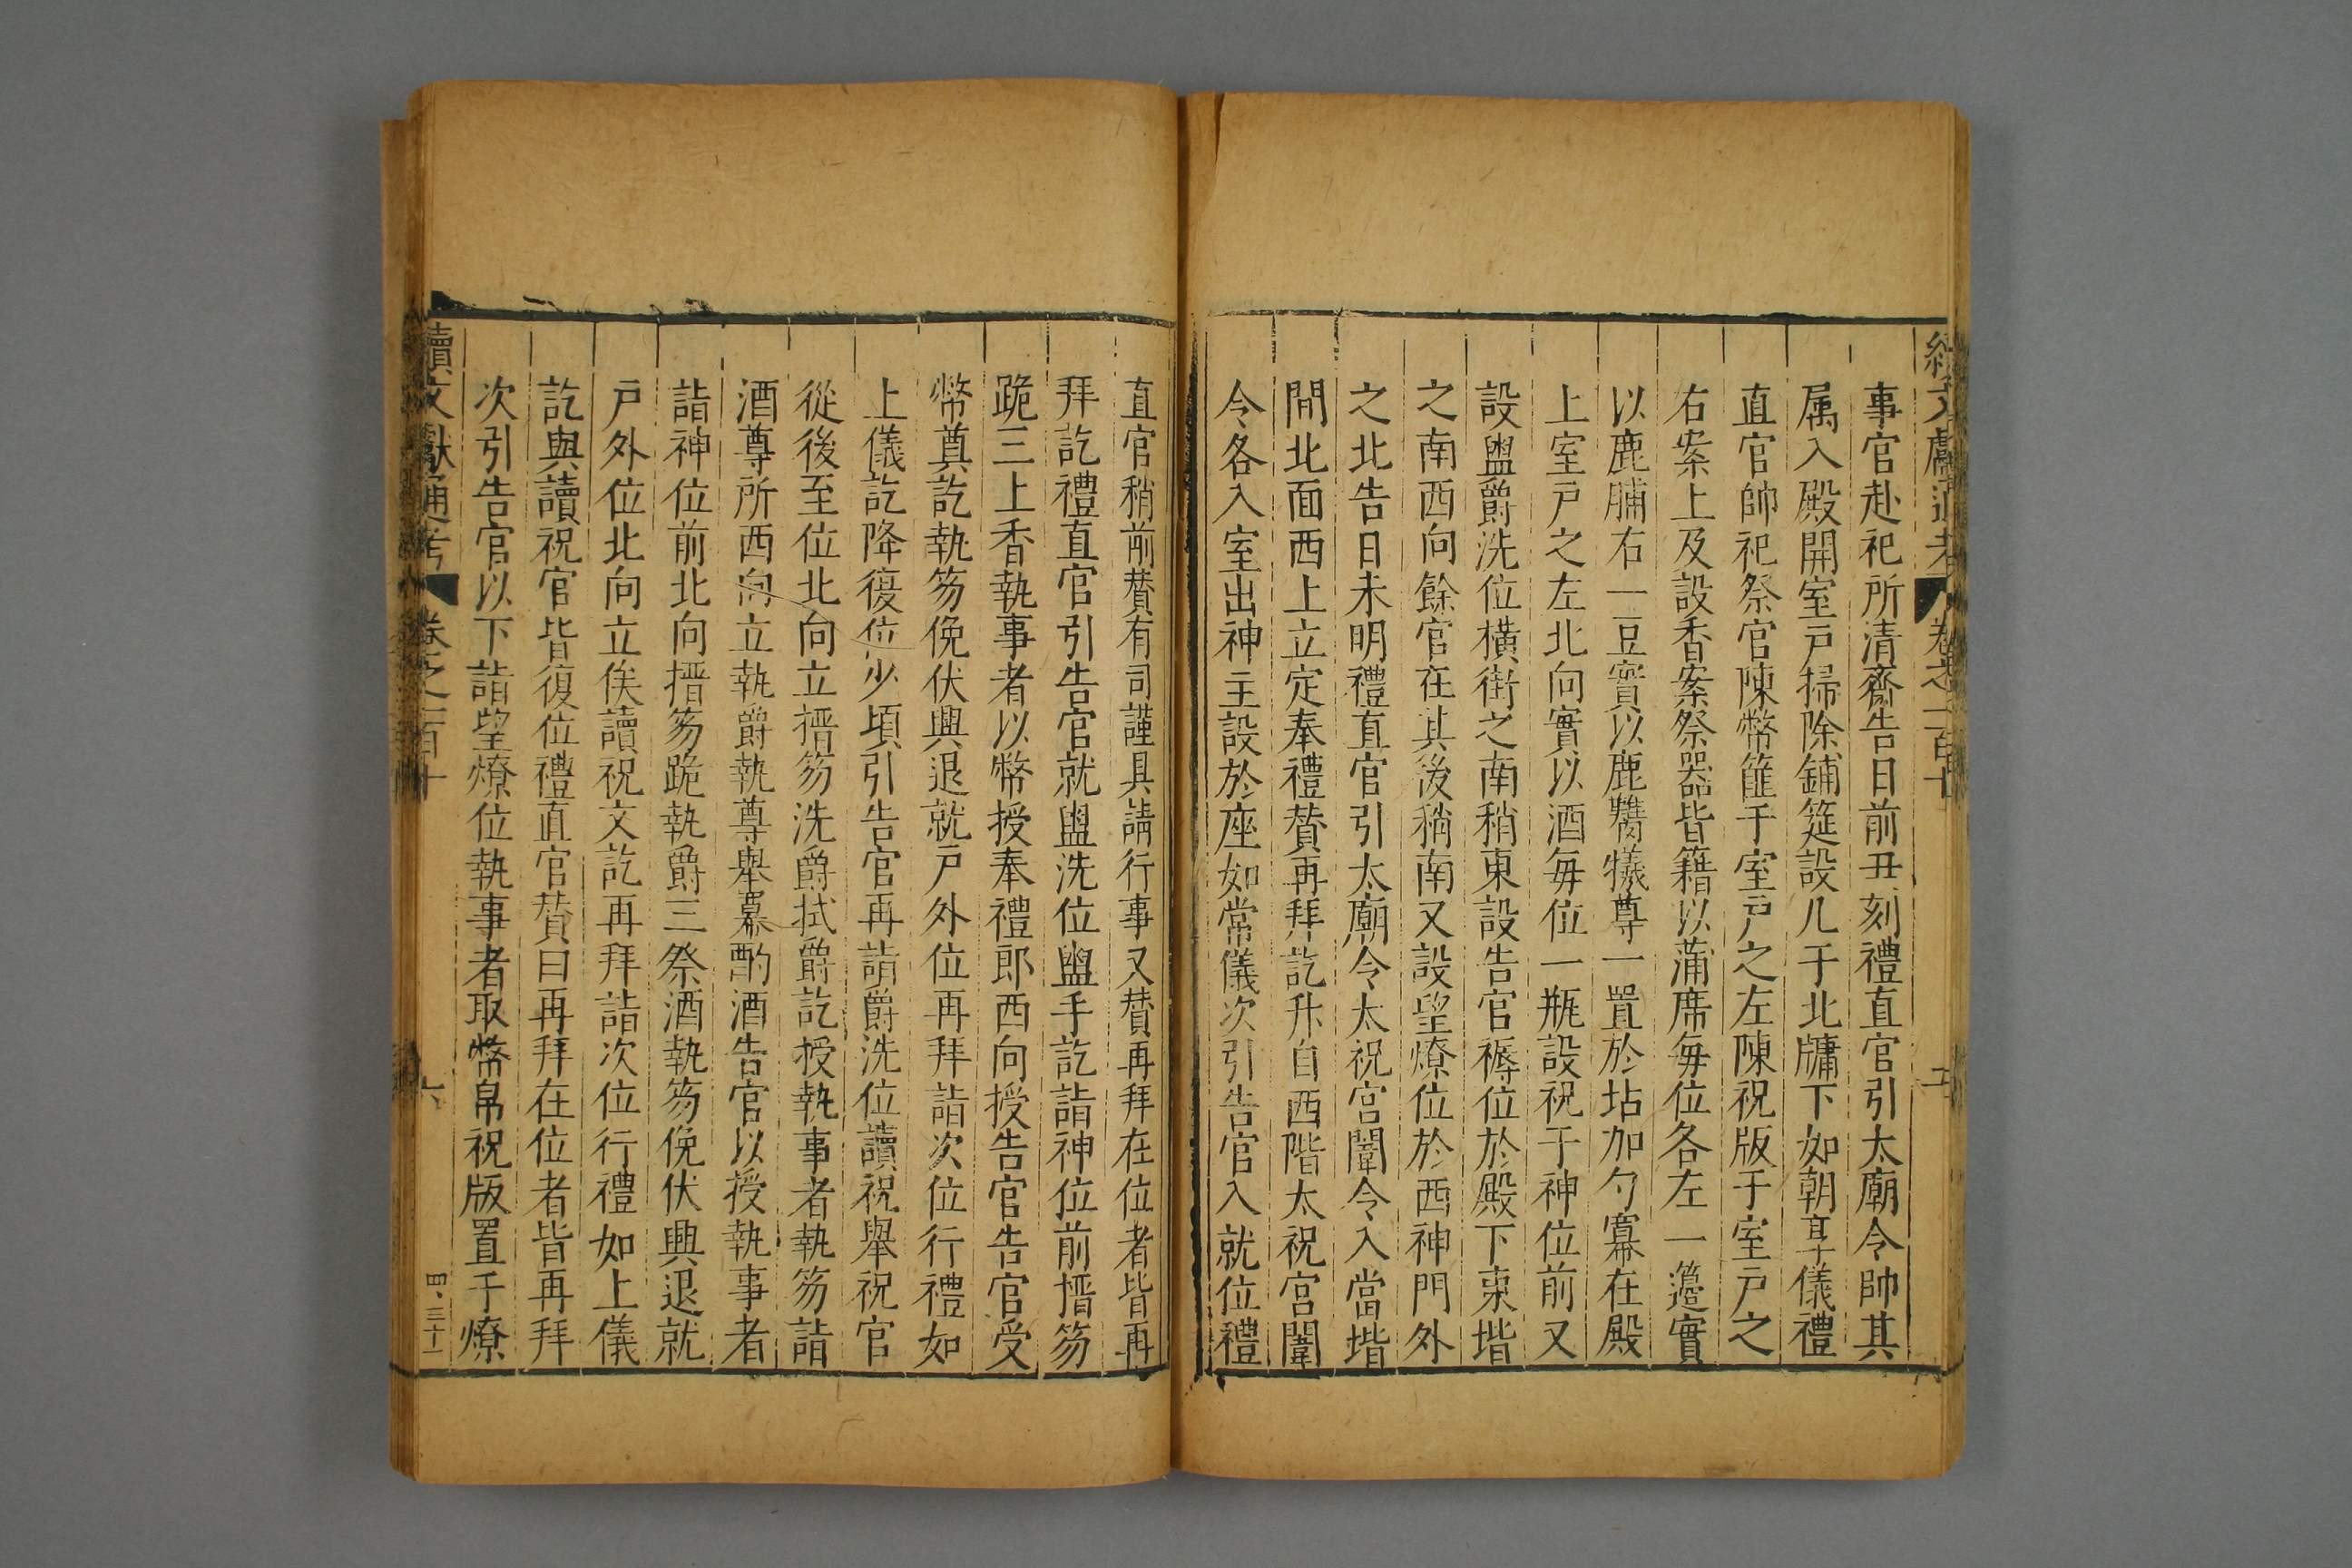 續文獻通考 卷之一百十 五
事官赴祀所清齋告日前丑刻禮直官引太廟令帥其
属入殿開室戸掃除鋪筵設几于北牖下如朝享儀禮
直官帥祀祭官陳幣篚于室戸之左陳祝版于室戸之
右案上及設香案祭器皆籍以蒲席毎位各左一籩實
以鹿脯右一豆實以鹿臡犧尊一置於坫加勺冪在殿
上室戸之左北向實以酒毎位一瓶設祝于神位前又
設盥爵洗位橫街之南稍東設告官褥位於殿下東堦
之南西向餘官在其後稍南又設望燎位於西神門外
之北告日未明禮直官引太廟令太祝宮闈令入當堦
間北面西上立定奉禮贊再拜訖升自西階太祝宮闈
令各入室出神主設於座如常儀次引告官入就位禮
直官稍前贊有司謹具請行事又贊再拜在位者皆再
拜訖禮直官引告官就盥洗位盥手訖詣神位前搢笏
跪三上香執事者以幣授奉禮郎西向授告官告官受
幣奠訖執笏俛伏興退就戸外位再拜詣次位行禮如
上儀訖降復位少頃引告官再詣爵洗位讀祝舉祝官
從後至位北向立搢笏洗爵拭爵訖授執事者執笏詣
酒尊所西向立執爵執尊舉冪酌酒告官以授執事者
詣神位前北向搢笏跪執爵三祭酒執笏俛伏興退就
戸外位北向立俟讀祝文訖再拜詣次位行禮如上儀
訖與讀祝官皆復位禮直官贊曰再拜在位者皆再拜
次引告官以下詣望燎位執事者取幣帛祝版置于燎
續文獻通考 卷之一百十 六 四、三十一